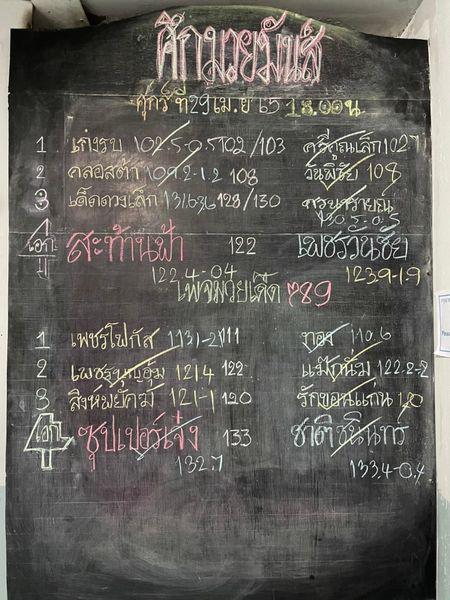 ศึกมวยมันส์
ศุกร์ ที่ 29 เม.ย 65 18.00 น.
1 เก่งรบ 102.5-0.5 102/103 ศรีคูณเล็ก 102.7
2 คลอสต้า 109.2-1.2 108 วันพิชัย 108
3 เด็ดดวงเล็ก 128/130
130.5-0.5
4 เอก สะท้านฟ้า 122 เพชรวันชัย
122.4-0.4 123.9-1.9
เพจมวยเด็ด 789
1 เพชรโฟกัส 111 ทอง 110.6
2 เพชรบุญอุ้ม 121.4 122 122.2-2
3 สิงห์พยัคฆ์ 121-1 120 รักขอนแก่น 120
4 เอก ซุปเปอร์เจ๋ง 133 ชาติชนินทร์
132.7 133.4-0.4